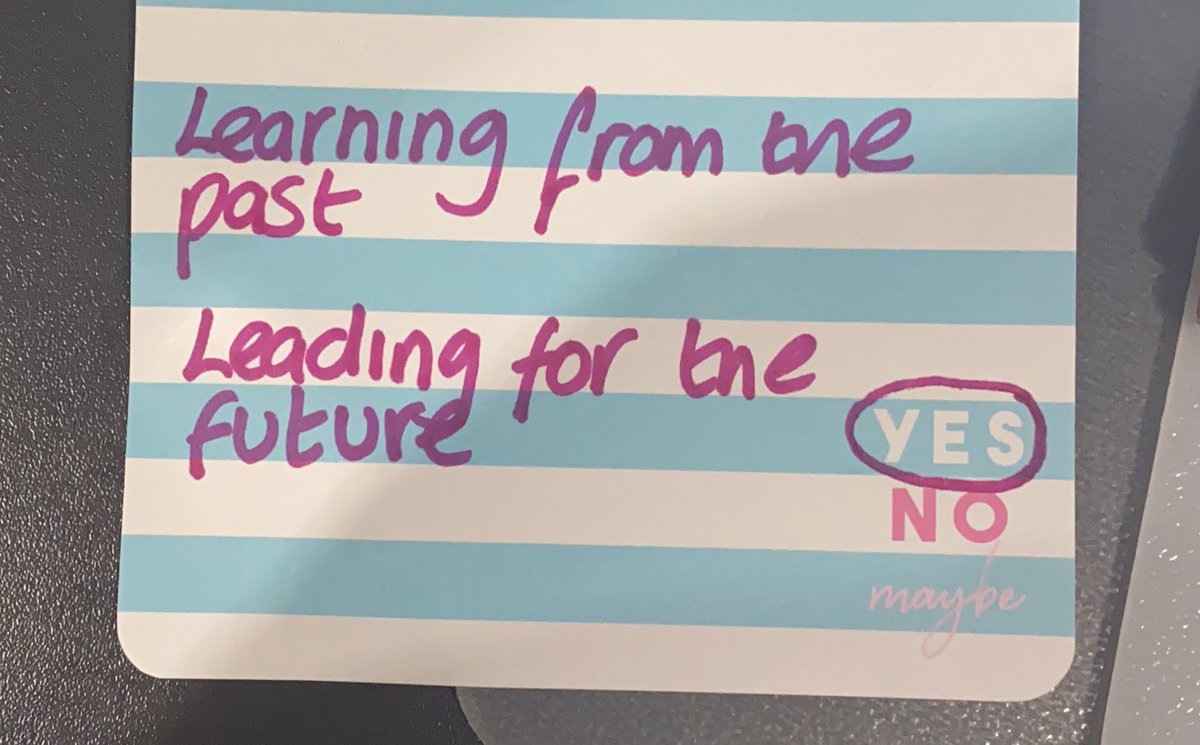 Learning from the
past
Leading for the
future
YES
NO
maybe